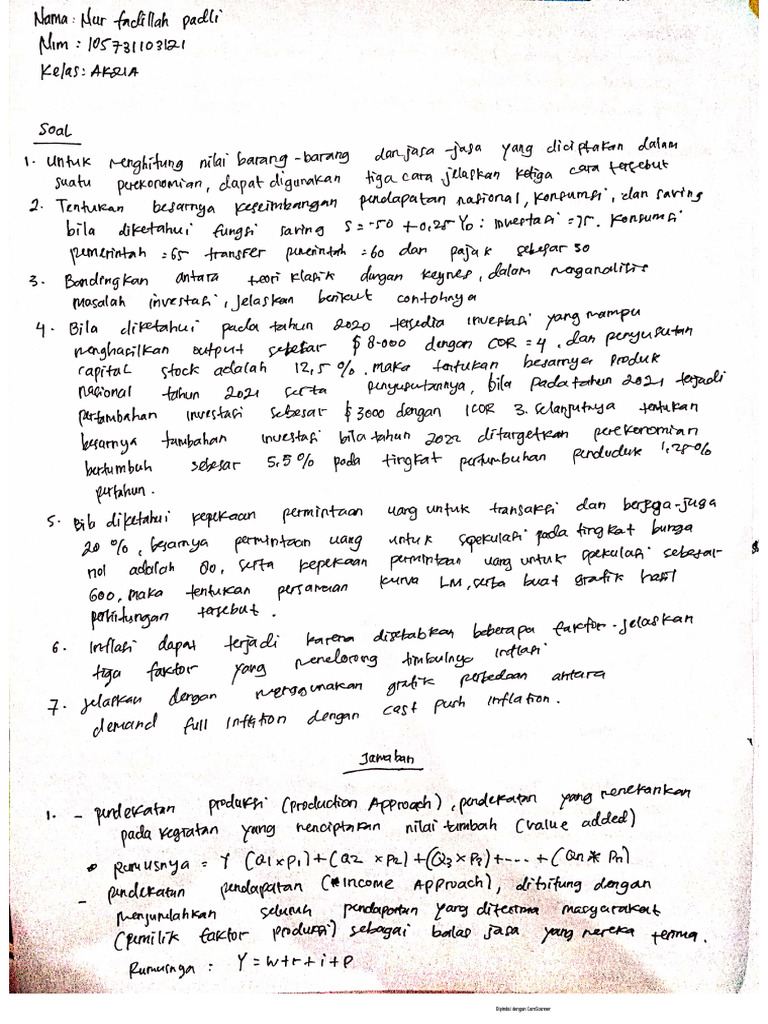 Nama : Nur fadillah padli
Nim : 105731103121
Kelas : AK21A
Soal
1. Untuk menghitung nilai barang-barang dan jasa-jasa yang diciptakan dalam
suatu perekonomian, dapat digunakan tiga cara jelaskan ketiga cara tersebut
2. Tentukan besarnya keseimbangan pendapatan nasional, konsumsi, dan saving
bila diketahui fungsi saving S = -50 + 0,25 YD : investasi = 75. Konsumsi
pemerintah = 65 transfer pemerintah = 60 dan pajak sebesar 30
3. Bandingkan antara teori klasik dengan keynes, dalam menganalisis
masalah investasi, jelaskan berikut contohnya
4. Bila diketahui pada tahun 2020 tersedia investasi yang mampu
menghasilkan output sebesar $ 8.000 dengan COR = 4, dan penyusutan
capital stock adalah 12,5 %. maka tentukan besarnya produk
nasional tahun 2021 serta penyusutannya, bila pada tahun 2021 terjadi
pertambahan investasi sebesar $ 3000 dengan ICOR 3. selanjutnya tentukan
besarnya tambahan investasi bila tahun 2022 ditargetkan perekonomian
bertumbuh sebesar 5,5 % pada tingkat pertumbuhan penduduk 1,25 %
pertahun.
5. Bila diketahui kepekaan permintaan uang untuk transaksi dan berjaga-juga
20 %, besarnya permintaan uang untuk spekulasi pada tingkat bunga
nol adalah 80, serta kepekaan permintaan uang untuk spekulasi sebesar
600, maka tentukan persamaan kurva LM, serta buat grafik hasil
perhitungan tersebut.
6. Inflasi dapat terjadi karena disebabkan beberapa faktor. jelaskan
tiga faktor yang mendorong timbulnya inflasi
7. jelaskan dengan menggunakan grafik perbedaan antara
demand full inflation dengan cast push inflation.
Jawaban
1. - pendekatan produksi (production Approach), pendekatan yang menekankan
pada kegiatan yang menciptakan nilai tambah (value added)
• Rumusnya = Y (Q1 x P1) + (Q2 x P2) + (Q3 x P3) + .... + (Qn * Pn)
- pendekatan pendapatan (*Income Approach), dihitung dengan
menjumlahkan seluruh pendapatan yang diterima masyarakat
(pemilik faktor produksi) sebagai balas jasa yang mereka terima.
Rumusnya : Y = w + r + i + p
Dipindai dengan CamScanner